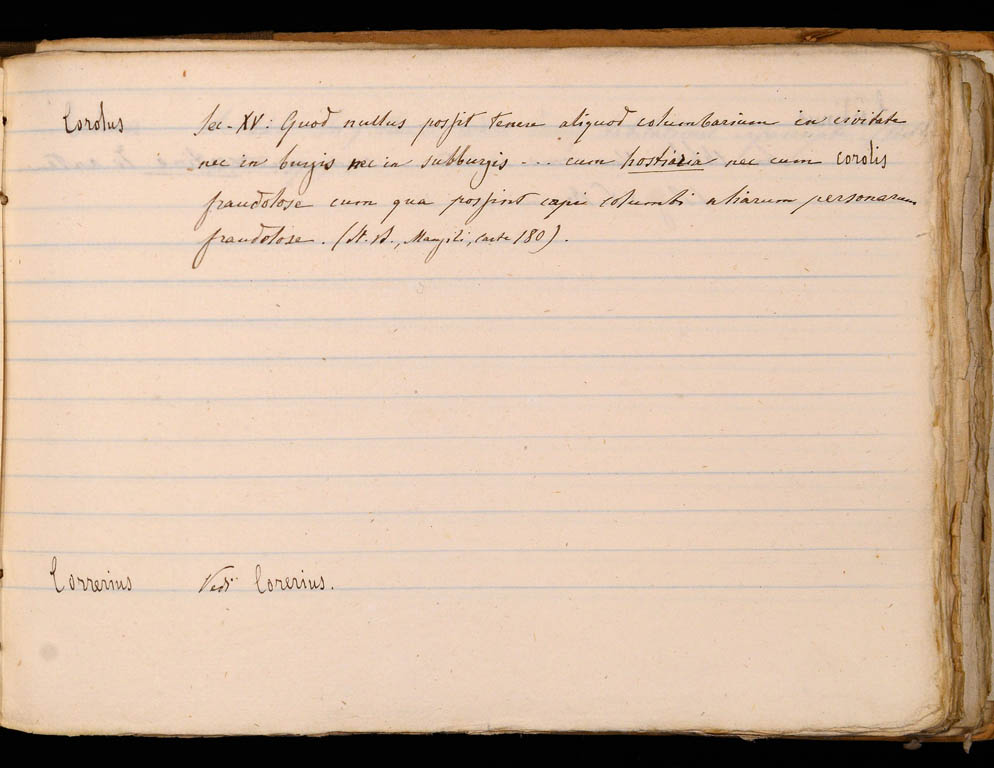 Corolus Sec. XV: Quod nullus possit tenere aliquod columbarium in civitate
nec in burgis nec in subburgis ... cum hostiaria nec cum corolis
fraudolose cum qua possint capi columbi aliarum personarum
fraudolose. (St. B., Mangili, carte 180).
Correrius Vedi Corerius.